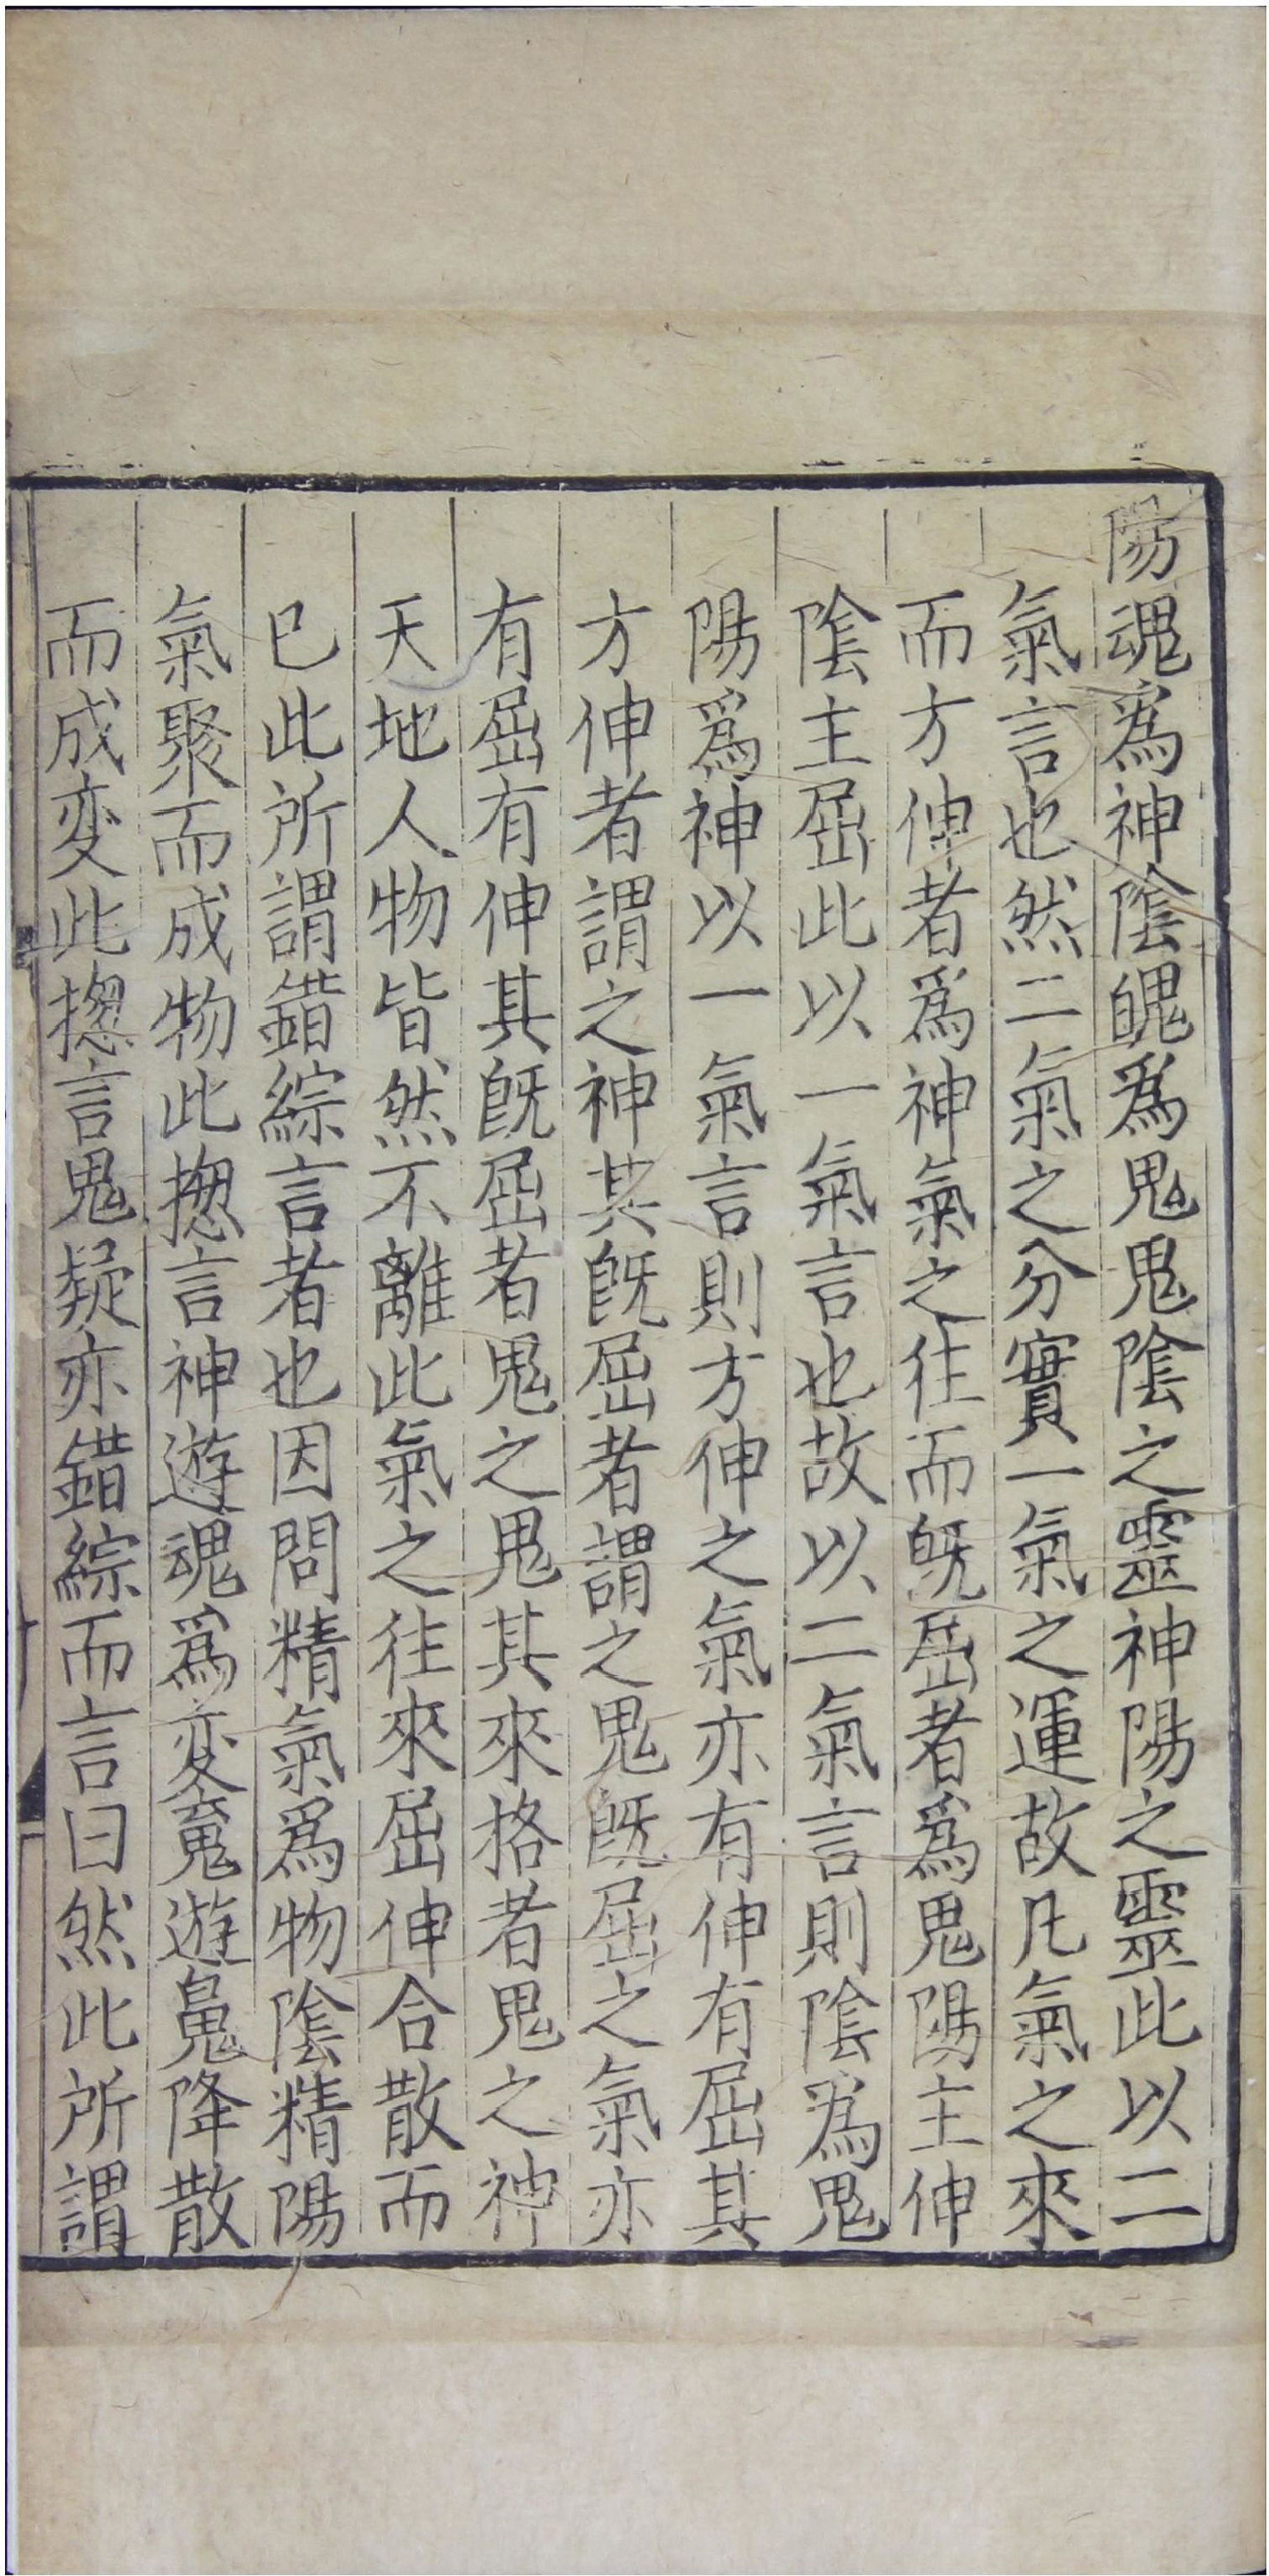 陽魂為神陰魄為鬼鬼陰之靈神陽之靈此以二
氣言也然二氣之分實一氣之運故凡氣之來
而方伸者爲神氣之往而旣屈者爲鬼陽主伸
陰主屈此以一氣言也故以二氣言則陰爲鬼
陽爲神以一氣言則方伸之氣亦有伸有屈其
方伸者謂之神其旣屈者謂之鬼旣屈之氣亦
有屈有伸其旣屈者鬼之鬼其來格者鬼之神
天地人物皆然不離此氣之往來屈伸合散而
已此所謂錯綜言者也因問精氣爲物陰精陽
氣聚而成物此摠言神遊魂爲変魂遊魄降散
而成変此摠言鬼疑亦錯綜而言曰然此所謂